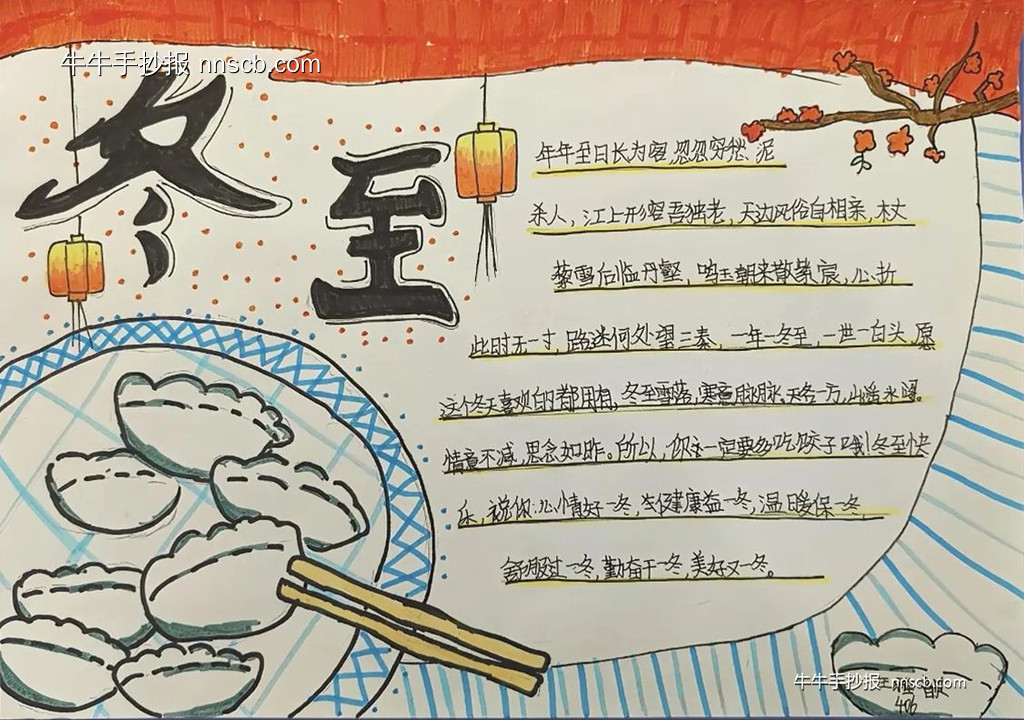 牛牛手抄报 nnscb.com
冬至
年年至日长为客,忽忽穷愁、泥
杀人,江上形容吾独老,天边风俗自相亲,杖
藜雪后临丹壑,鸣玉朝来散紫宸,心折
此时无一寸,路迷何处望三秦,一年一冬至,一世一白头,愿
这个冬天喜欢的都用有。冬至雪落,寒意脉脉,天各一方,山遥水
情意不减,思念如昨。所以,你一定要多吃饺子哦!冬至快
乐,说你:心情好一冬,健康益一冬,温暖保一冬,
舒服过一冬,勤奋干一冬,美好又一冬。
牛牛手抄报 nnscb.com
406